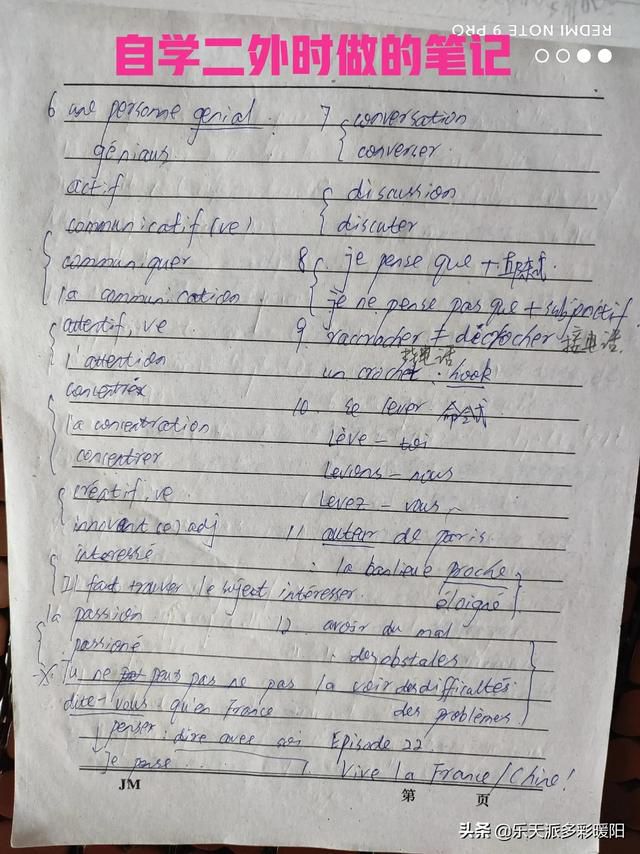 REDMI NOTE 9 PRO
自学二外时做的笔记
6 une personne genial
géniaus
actif
communicatif (ve)
communiquer
la communication
attentif, ve
l'attention
la concentration
concentrer
créatif, ve
innovant (e) adj
intéressé
Il faut trouver le sujest intéresser.
la passion
passioné
Tu ne peus pas ne pas la voir
dite-vous qu'en France
penser: dire avec soi
je pense
7 conversation
converser
discussion
discuter
8 je pense que +
je ne pense pas que + subjonctif
9. raccrocher ≠ décrocher 接电话
挂电话
un crochet: hook
10. se lever 命令式
Lève-toi
Levons-nous
Levez-vous
11 autour de paris
: la banlieue proche
éloigné
12. avoir du mal
: des obstales
des difficultés
des problèmes.
Episode 22
1. Vive la France/Chine!
JM
第 页
头条 @乐天派多彩暖阳